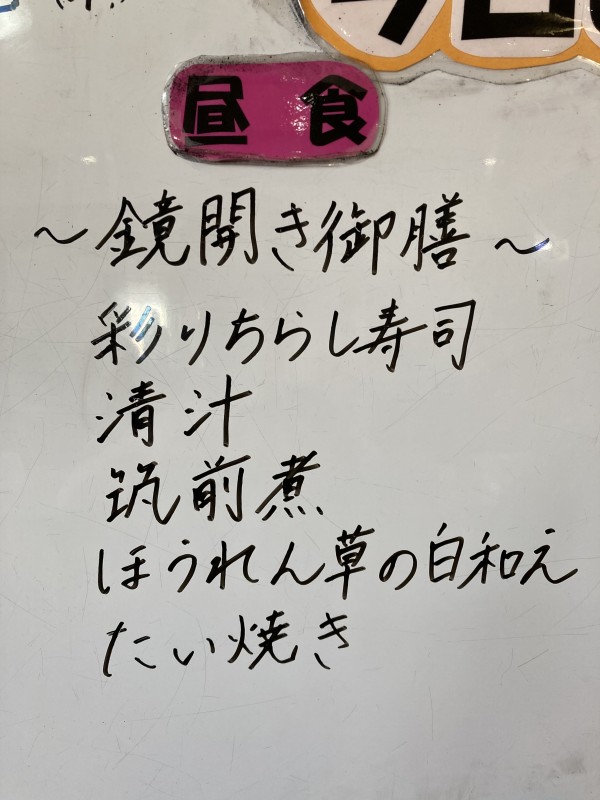 昼食
～鏡開き御膳～
彩りちらし寿司
清汁
筑前煮
ほうれん草の白和え
たい焼き